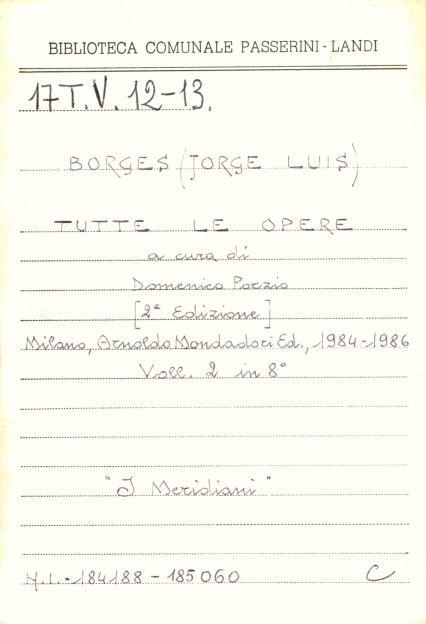 BIBLIOTECA COMUNALE PASSERINI-LANDI
17T.V. 12-13.
BORGES (JORGE LUIS)
TUTTE LE OPERE
a cura di
Domenico Porzio
[2ª Edizione]
Milano, Arnoldo Mondadori Ed., 1984-1986
Voll. 2 in 8°
"I Meridiani"
N.I.-184188-185060 C